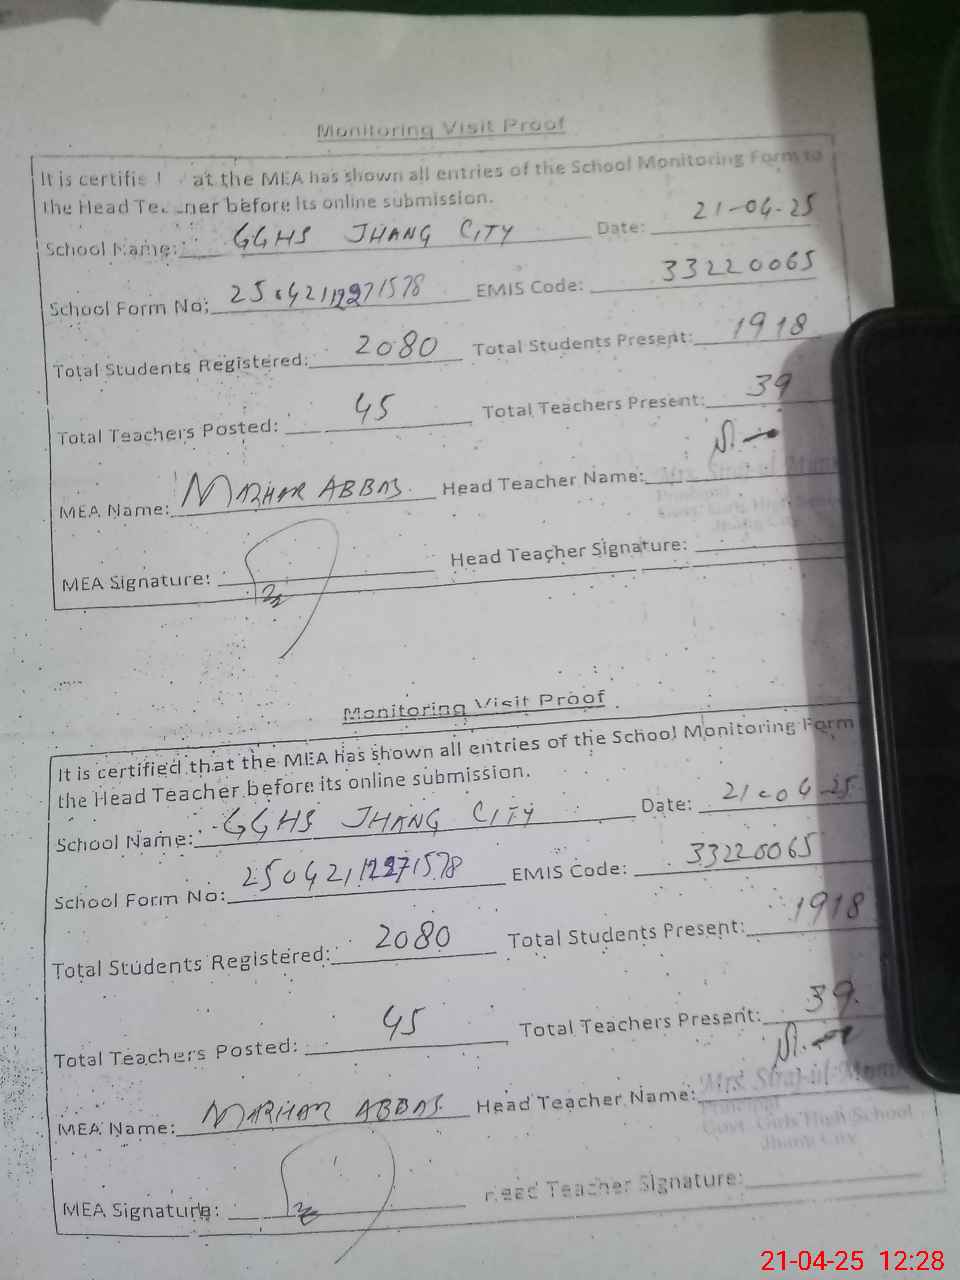 Monitoring Visit Proof
It is certifie at the MEA has shown all entries of the School Monitoring Form to
the Head Teacher before its online submission.
School Name: GGHS JHANG CITY Date: 21-04-25
School Form No: 25042112271578 EMIS Code: 33220065
Total Students Registered: 2080 Total Students Present: 1918
Total Teachers Posted: 45 Total Teachers Present: 39
MEA Name: MAZHAR ABBAS. Head Teacher Name: Mrs. Siraj-ul-
Principal
Govt. Girls High
Jhang City
MEA Signature: Head Teacher Signature:
Monitoring Visit Proof
It is certified that the MEA has shown all entries of the School Monitoring Form
the Head Teacher before its online submission.
School Name: GGHS JHANG CITY Date: 21-04-25
School Form No: 25042112271578 EMIS Code: 33220065
Total Students Registered: 2080 Total Students Present: 1918
Total Teachers Posted: 45 Total Teachers Present: 39
MEA Name: MAZHAR ABBAS. Head Teacher Name: Mrs. Siraj-ul-
Principal
Govt. Girls High School
Jhang City
MEA Signature: Head Teacher Signature:
21-04-25 12:28